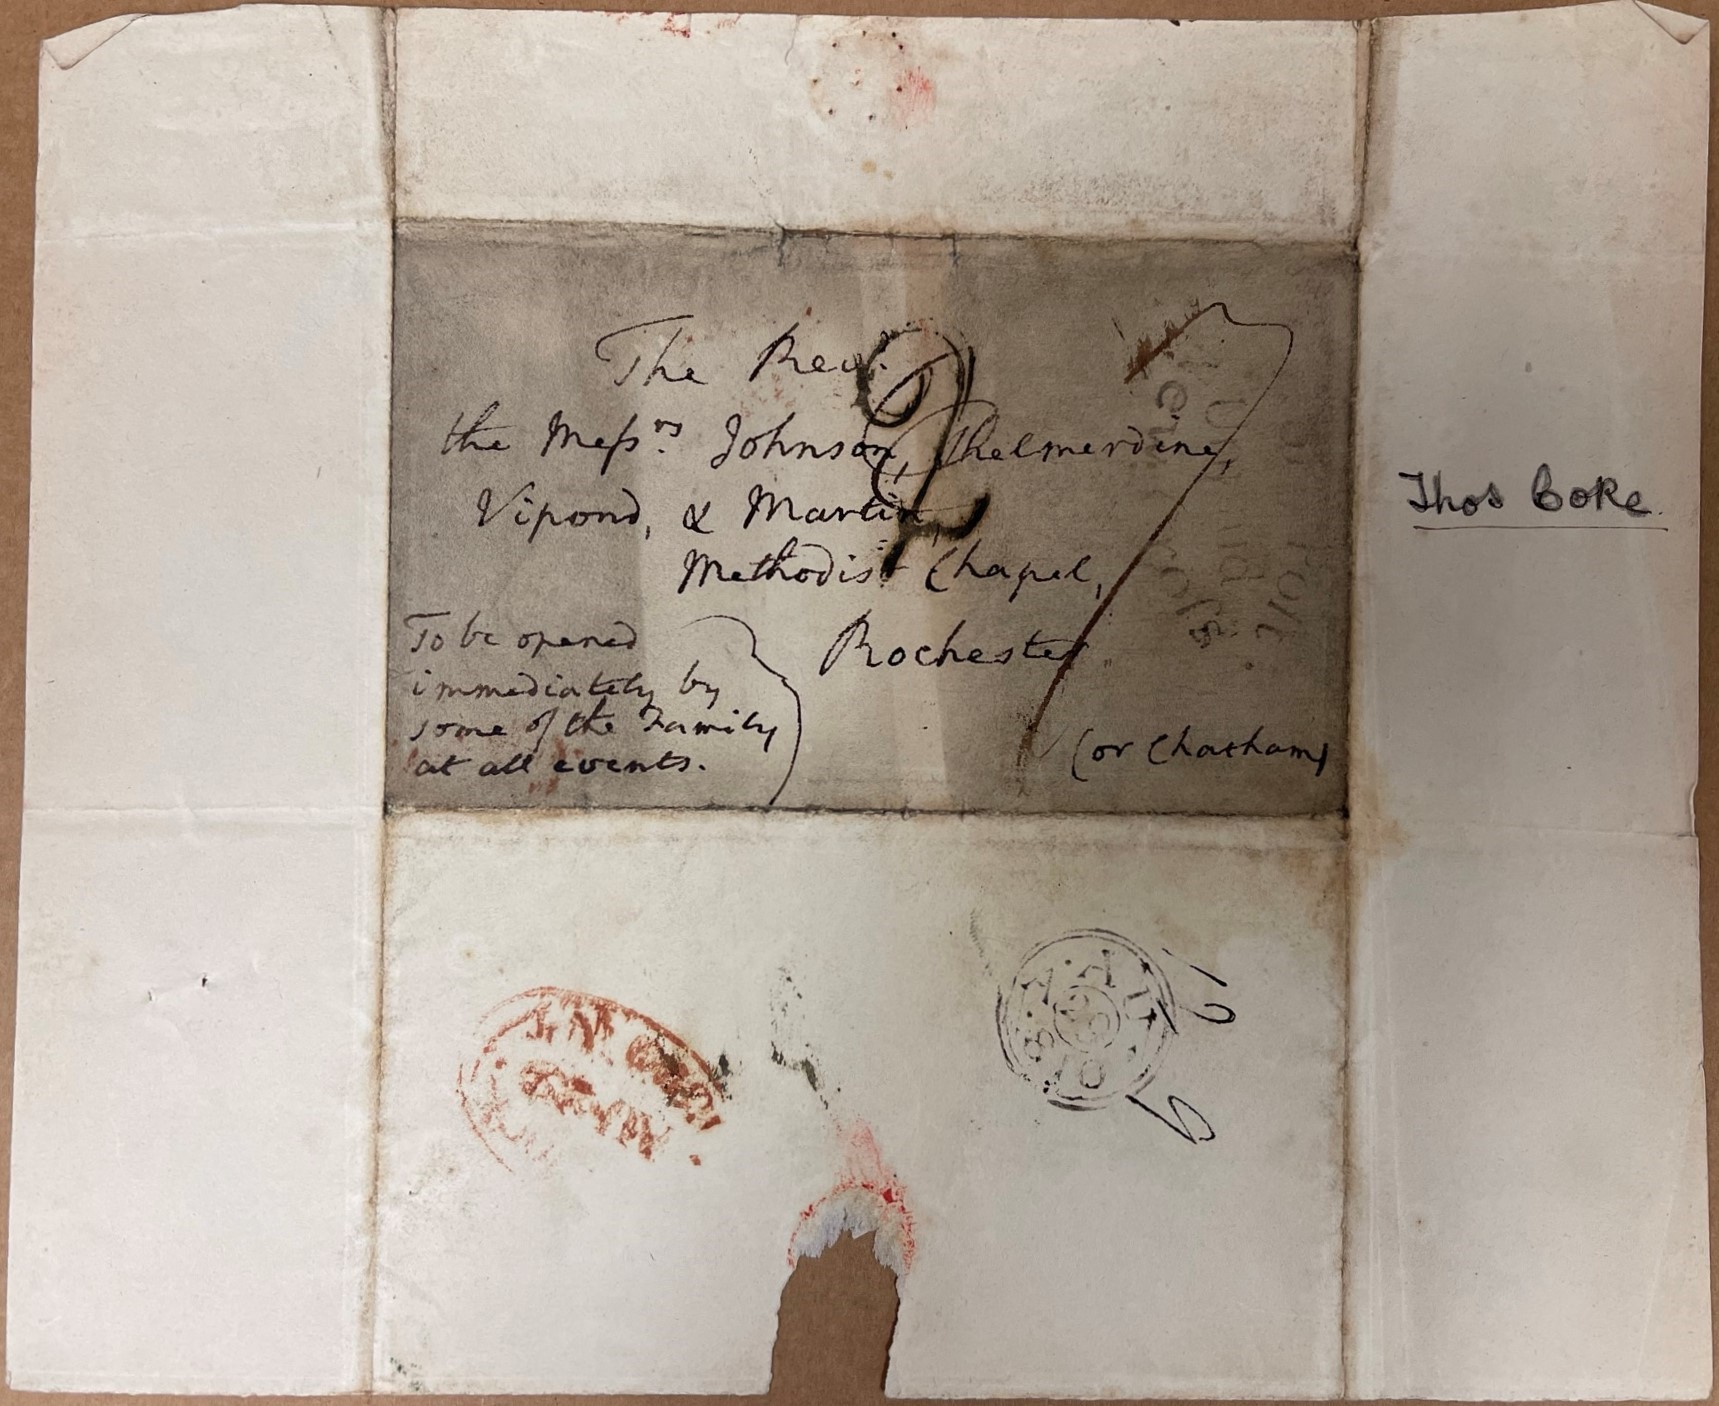 The Revd.
the Messrs. Johnson, Shelmerdine,
Vipond, & Martin,
Methodist Chapel,
Rochester
(or Chatham)
To be opened
immediately by
some of the Family
at all events.
2
Thos Coke
810